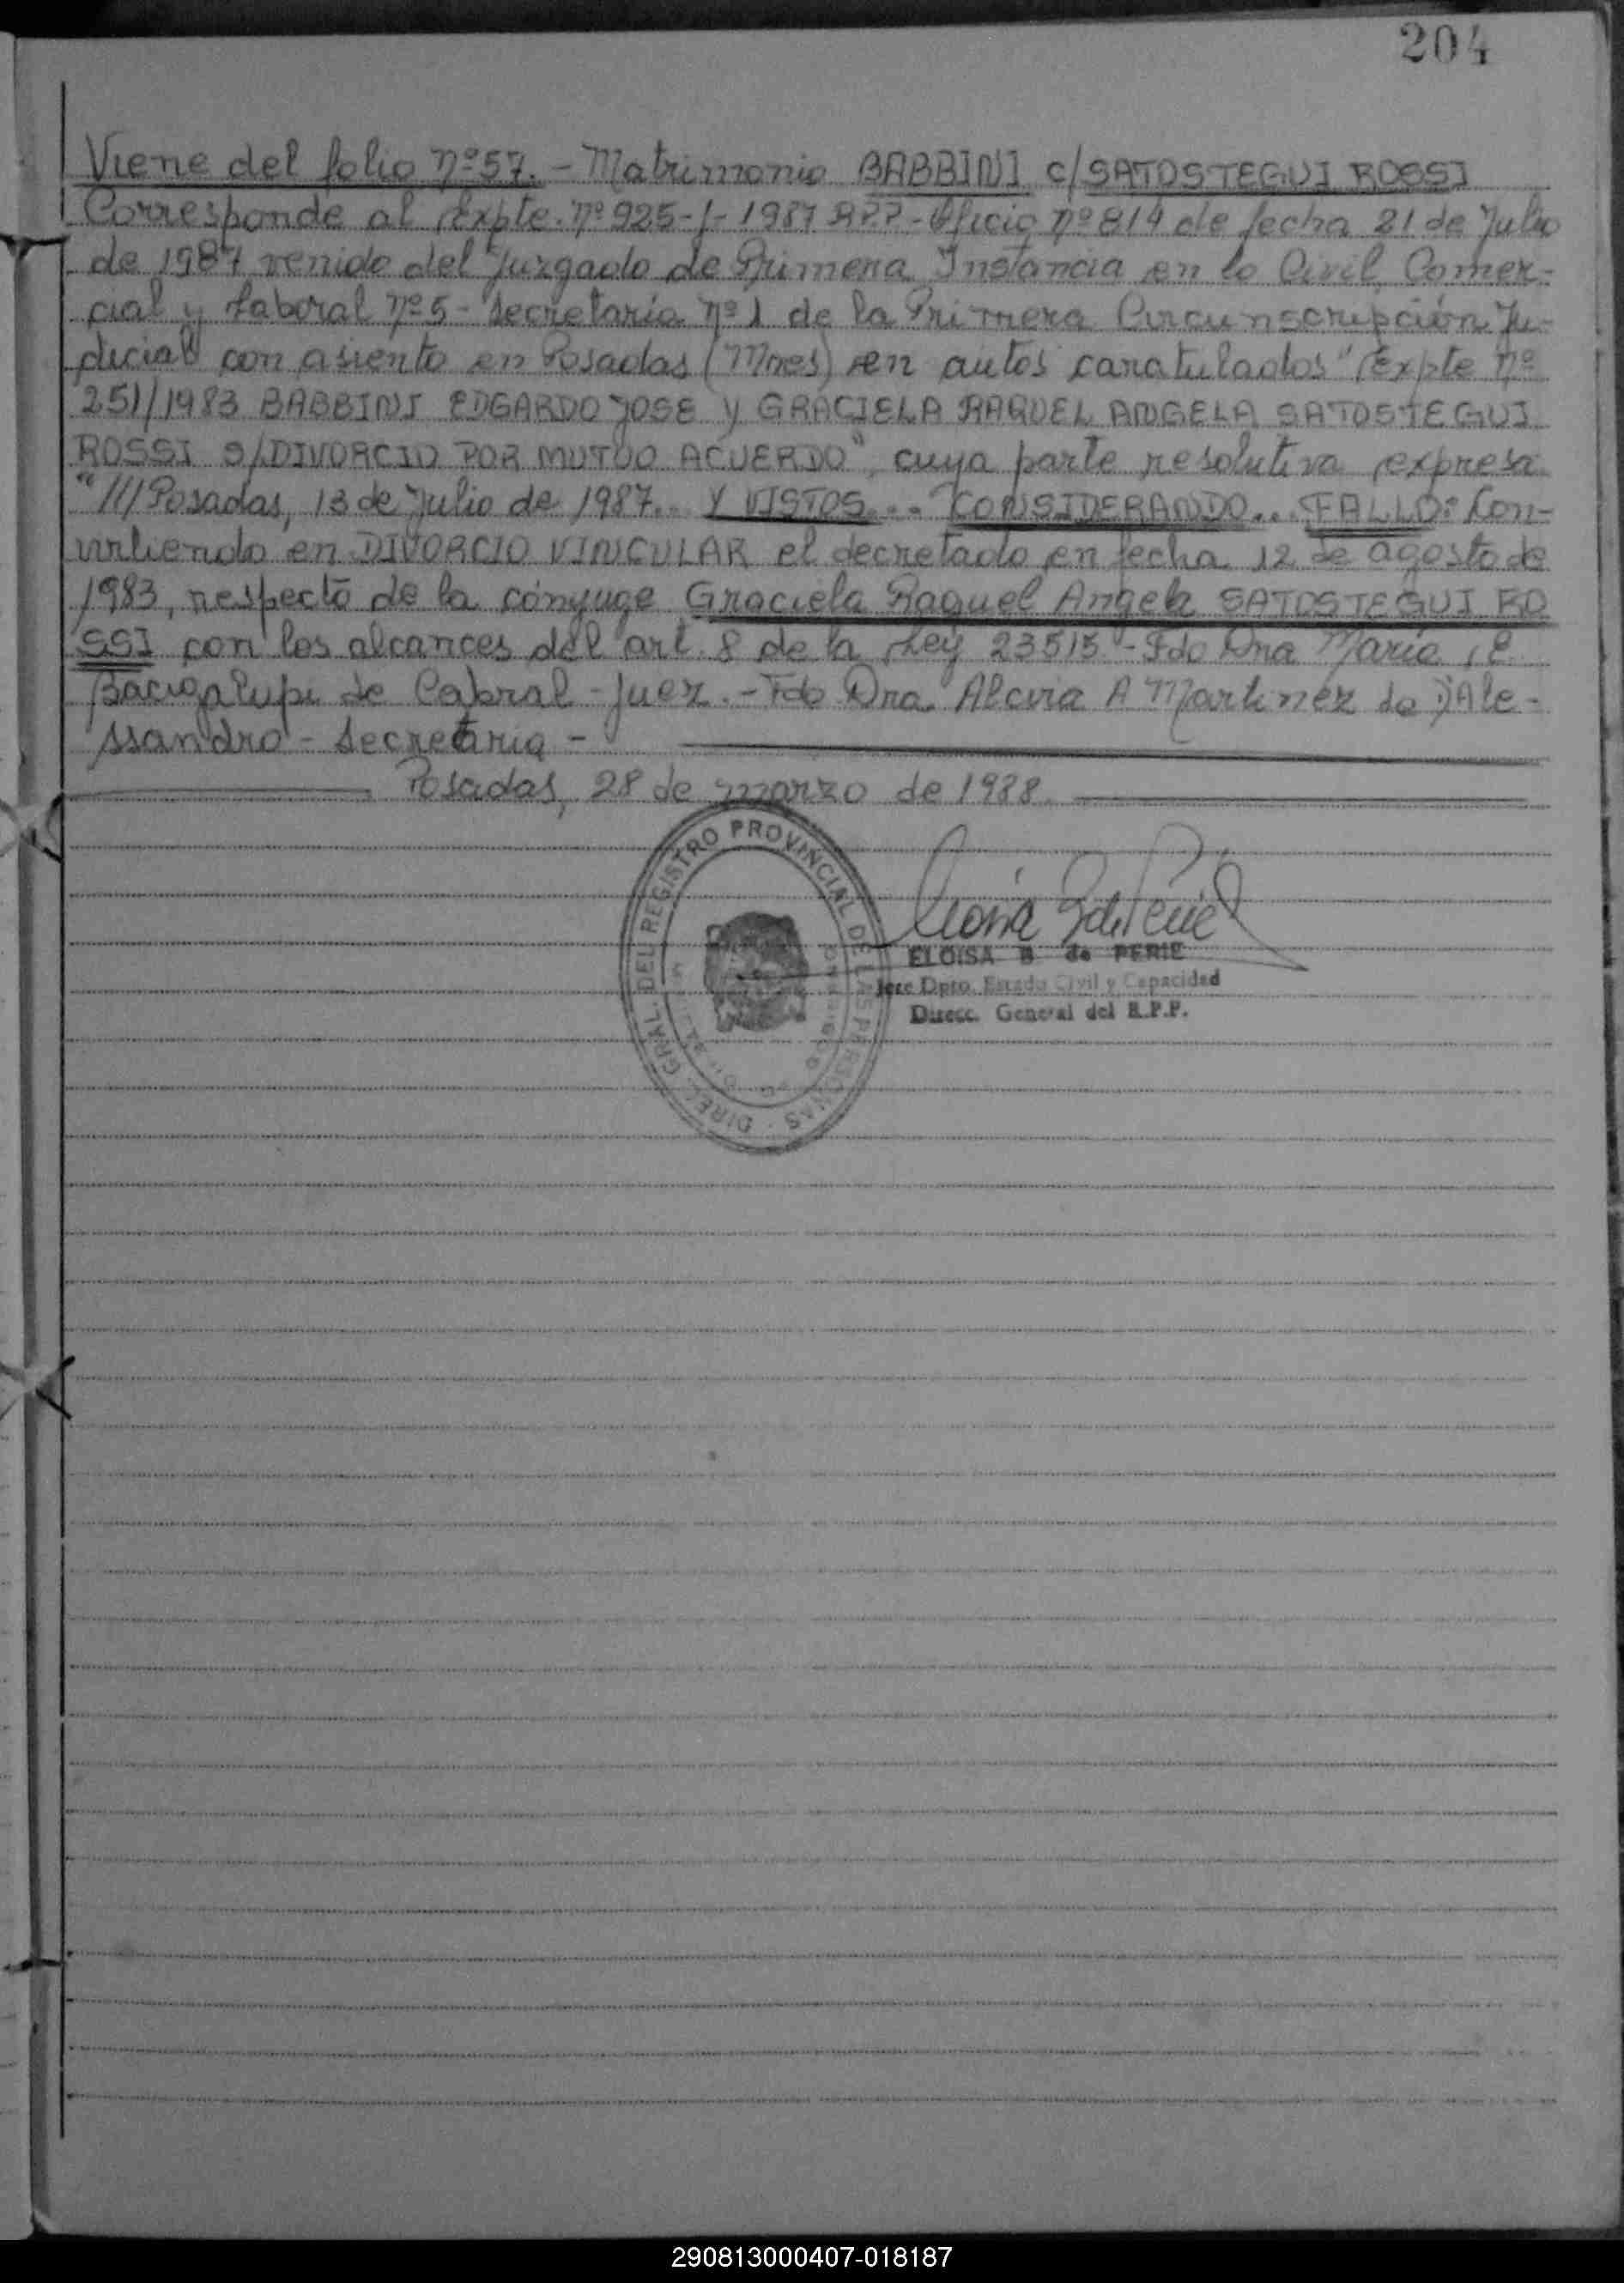 204
Viene del folio nº 57. - Matrimonio BABBINI c/ SATOSTEGUI ROSSI
Corresponde al Expte. nº 925-J-1987 RPP - Oficio nº 814 de fecha 21 de Julio
de 1987 venido del Juzgado de Primera Instancia en lo Civil Comer-
cial y Laboral nº 5 - Secretaría nº 1 de la Primera Circunscripción Ju-
dicial con asiento en Posadas (Mnes) en autos caratulados "Expte nº
251/1983 BABBINI EDGARDO JOSE Y GRACIELA RAQUEL ANGELA SATOSTEGUI
ROSSI S/DIVORCIO POR MUTUO ACUERDO", cuya parte resolutiva expresa
"/// Posadas, 13 de Julio de 1987... Y VISTOS... CONSIDERANDO... FALLO: Con-
virtiendo en DIVORCIO VINCULAR el decretado en fecha 12 de agosto de
1983, respecto de la cónyuge Graciela Raquel Angela SATOSTEGUI RO
SSI con los alcances del art. 8 de la Ley 23515" - Fdo Dra María E.
Bacigalupi de Cabral - Juez. - Fdo Dra. Alcira A Martinez de D'Ale-
ssandro - Secretaria -
Posadas, 28 de marzo de 1988.
DIREC. GRAL. DEL REGISTRO PROVINCIAL DE LAS PERSONAS
ELOISA B de PERIE
Jefe Dpto. Estado Civil y Capacidad
Direcc. General del R.P.P.
290813000407-018187